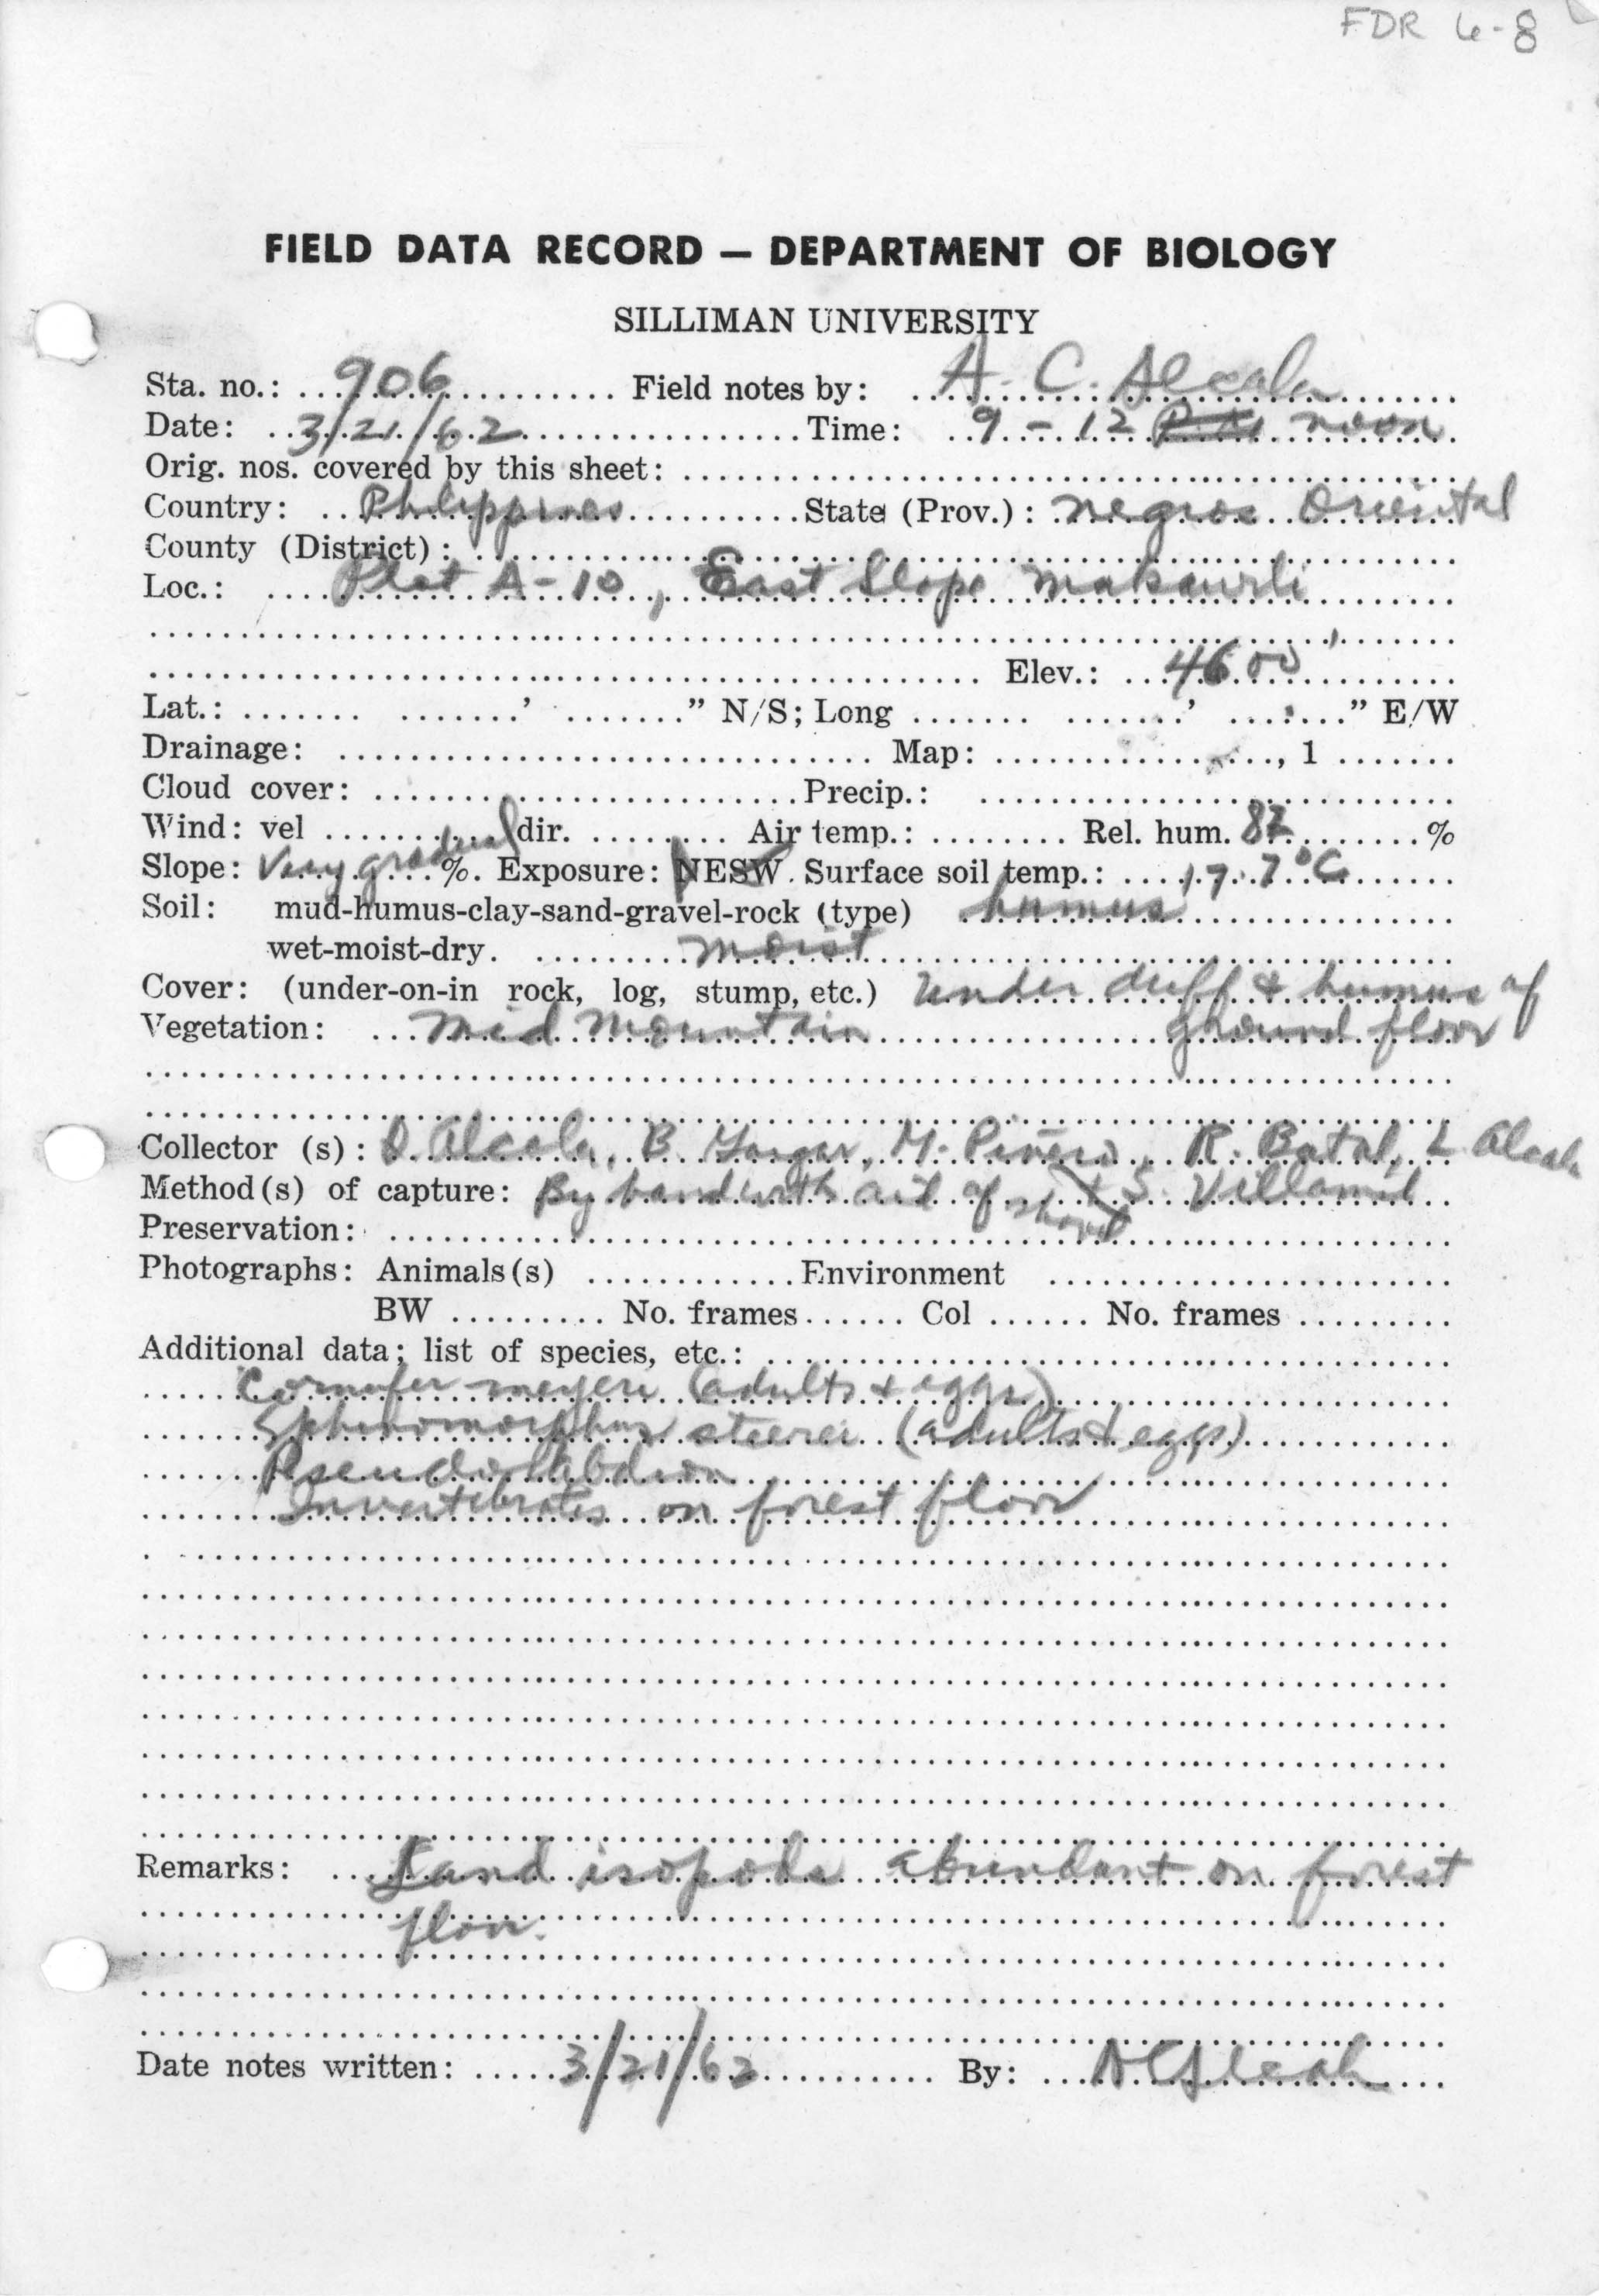 FDR 6-8
FIELD DATA RECORD — DEPARTMENT OF BIOLOGY
SILLIMAN UNIVERSITY
Sta. no.: 906 Field notes by: A. C. Alcala
Date: 3/21/62 Time: 9 - 12 noon
Orig. nos. covered by this sheet:
Country: Philippines State (Prov.): Negros Oriental
County (District):
Loc.: Plot A-10, East Slope
Elev.: 4600'
Lat.: ' " N/S; Long ' " E/W
Drainage: Map: , 1
Cloud cover: Precip.:
Wind: vel dir. Air temp.: Rel. hum. 82 %
Slope: Very gradual %. Exposure: NESW. Surface soil temp.: 17.7°C
Soil: mud-humus-clay-sand-gravel-rock (type) humus
wet-moist-dry. moist
Cover: (under-on-in rock, log, stump, etc.) Under duff & humus of
Vegetation: Mid Mountain ground floor
Collector (s): D. Alcala, B. Gargar, M. Piñero, R. Batal, L Alcala
Method(s) of capture: By hand with aid of shovel & S. Villamil
Preservation:
Photographs: Animals(s) Environment
BW No. frames Col No. frames
Additional data; list of species, etc.:
Cornufer meyeri (adults & eggs)
Sphenomorphus steerei (adults & eggs)
Pseudorabdion
Invertebrates on forest floor
Remarks: Land isopods abundant on forest
floor.
Date notes written: 3/21/62 By: A C Alcala